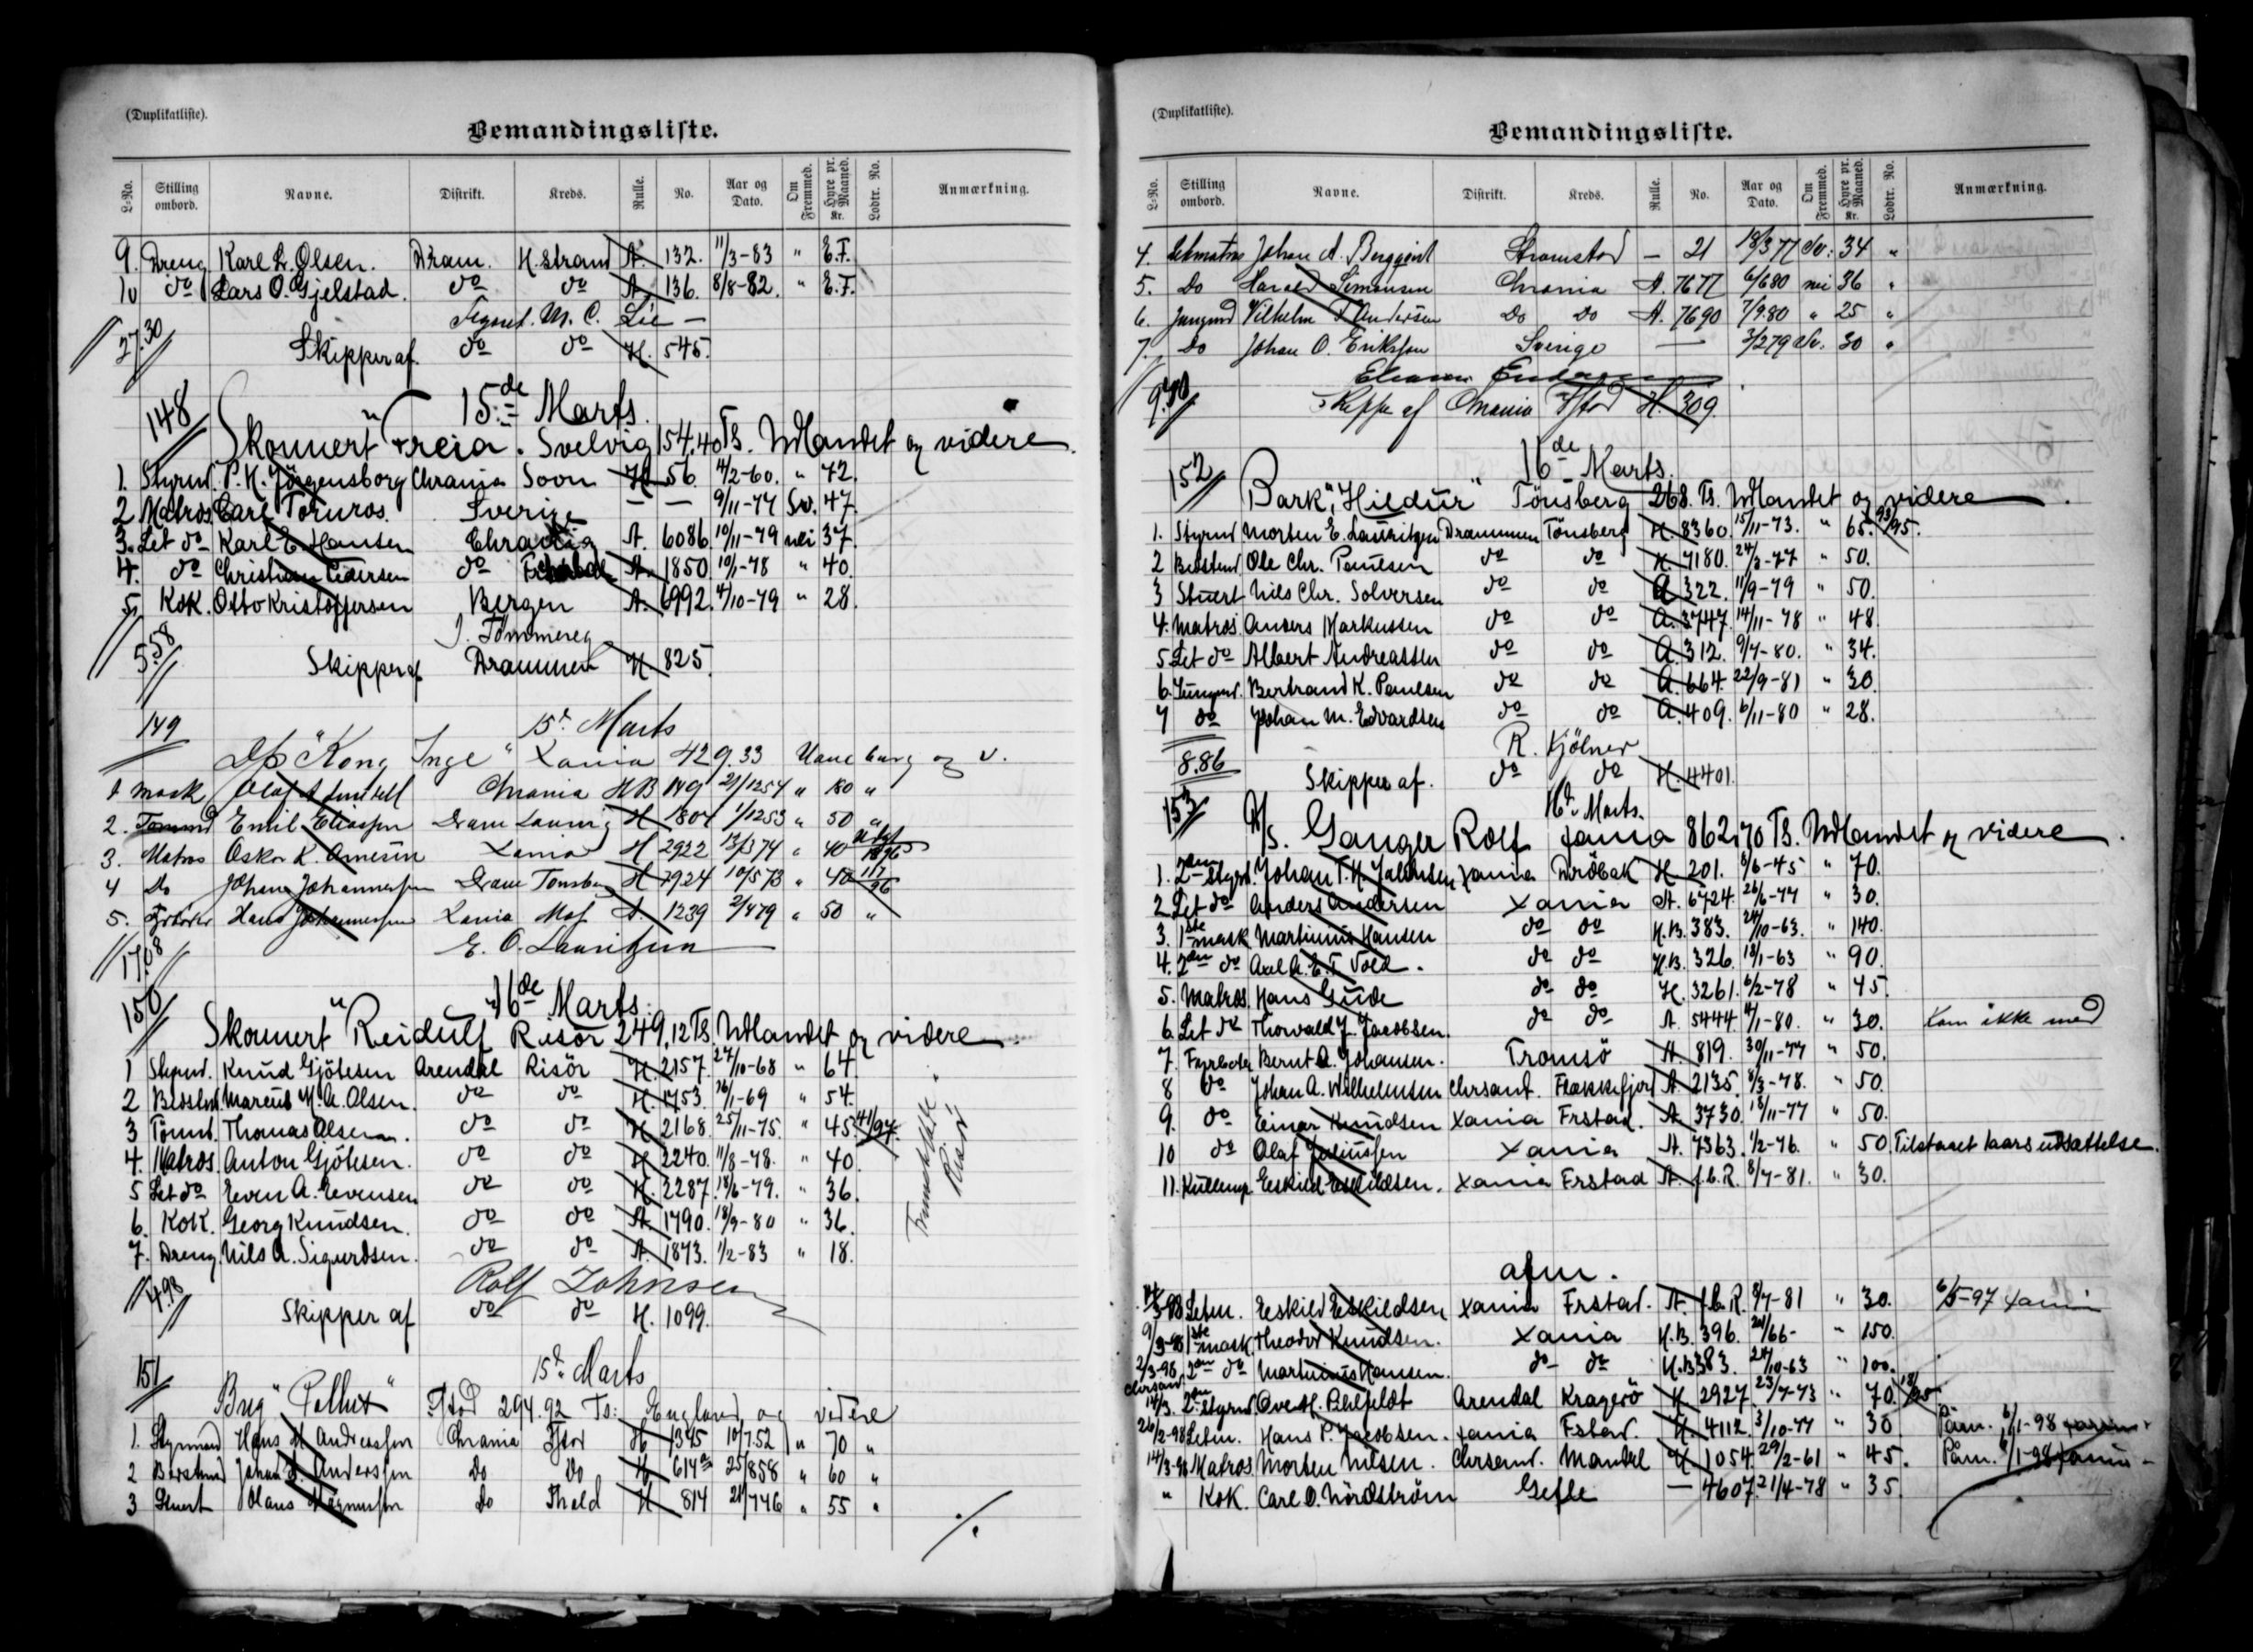 (Duplikatliste).
Bemandingsliste.
L-No. Stilling ombord. Navne. Distrikt. Kreds. Rulle. No. Aar og Dato. Om Fremmed. Hyre pr. Maaned. Kr. Lodtr. No. Anmærkning.
9. Dreng Karl L. Olsen. Dram. H.strand A. 132. 11/3-83 " E.F.
10 do Lars O. Gjelstad. do do A. 136. 8/8-82. " E.F.
Tegnet. M. C. Lie —
27.30 Skipper af do do H. 545.
15.de Marts.
148
Skonnert "Freia. Svelvig 154,40 Ts. Udlandet og videre.
1. Styrmd. P. K. Jörgensborg Chrania Soon H 56 4/2-60. " 72.
2 Matros. Carl Tornros. Sverige — — 9/11-74 Sv. 47.
3. Let do Karl E. Hansen Chrania A. 6086 10/11-79 nei 37.
4. do Christian Pedersen do A. 1850 10/1-78 " 40.
5. Kok. Otto Kristoffersen Bergen A. 6992. 4/10-79 " 28.
5.58
Skipper af Drammen H 825.
149
15d Marts
D/s "Kong Inge" Xania 429.33 og v.
1 Mask Olaf Chrania HB 149 21/12 54 " 80 "
2. Emil Eliassen Dram H 1804 1/12 53 " 50 "
3. Matros Oskar K. Arnesen Xania H 2922 13/3 74 " 40 1896
4 Do Johan Johannessen Dram Tonsberg H 7924 10/5 73 " 40 117/96
5. Fyrböter Hans Johannessen Xania Mos A. 1239 2/4 79 " 50 "
17.08 E. O. Lauritzen
150
16de Marts.
Skonnert "Reidulf" Risör 249,12 Ts. Udlandet og videre.
1 Styrmd. Knud Gjötesen Arendal Risör H. 2157. 27/10-68 " 64.
2 Bedstmd. Marcus M. A. Olsen. do do H. 1753. 16/1-69 " 54.
3 Tönmd. Thomas Olsen. do do H 2168. 25/11-75. " 45. 41/97.
4. Matros. Anton Gjötesen. do do H 2240. 11/8-78. " 40.
5 Let do Even A. Evensen do do H. 2287. 18/6-79. " 36.
6. Kok. Georg Knudsen. do do A. 1790. 18/9-80 " 36.
7. Dreng. Nils A. Sigurdsen. do do A. 1873. 1/2-83 " 18.
Rolf Johnsen
4.98
Skipper af do do H. 1099.
151
15d Marts
Brig "Pollux" Fstad 294.92 Ts: England og videre
1. Styrmand Hans M Andreassen Chrania Fstad H 1345 10/7.52 " 70 "
2 Bestmd Johan Anderssen Do Do H 614 25/8 58 " 60 "
3 Stuert Olaus Magnussen Do Fhald H 814 21/7 46 " 55 "
./.
(Duplikatliste).
Bemandingsliste.
L-No. Stilling ombord. Navne. Distrikt. Kreds. Rulle. No. Aar og Dato. Om Fremmed. Hyre pr. Maaned. Kr. Lodtr. No. Anmærkning.
4. Letmatros Johan A. Bergqvist Stromstad — 21 18/3 77 Sv. 34 "
5. Do Harald Simonsen Chrania A. 7677 6/6 80 nei 36 "
6. Jungmd Vilhelm Andersen Do Do A. 7690 7/9.80 " 25 "
7. Do Johan O. Eriksson Sverige — 3/2 79 Sv. 30 "
Skipper af Chrania Fstad H. 309.
16de Marts.
152
Bark "Hildur" Tönsberg 268. Ts. Udlandet og videre.
1. Styrmd Morten E. Lauritzen Drammen Tönsberg H. 8360. 15/11-73. " 65. 93/95.
2 Bedstmd Ole Chr. Paulsen do do H. 7180. 24/3-77 " 50.
3 Stuert Nils Chr. Solversen do do A 322. 11/9-79 " 50.
4. Matros. Anders Markussen do do A. 3747. 14/11-78 " 48.
5. Let do Albert Andreassen do do A. 312. 9/7-80. " 34.
6. Jungmd. Bertrand K. Paulsen do do A. 664. 22/9-81 " 30.
7 do Johan M. Edvardsen do do A. 409. 6/11-80 " 28.
R. Kjölner
8.86
Skipper af. do do H. 4401.
153
16d. Marts.
D/s. Ganger Rolf Xania 862,70 Ts. Udlandet og videre.
1. 2den Styrm. Johan T. H. Xania Dröbak H. 201. 8/6-45 " 70.
2. Let do Anders Andersen Xania A. 6724. 26/6-77 " 30.
3. 1ste mask Martinius Hansen do do H.B. 383. 24/10-63. " 140.
4. 2den do Axel A. E. T. Vold. do do H.B. 326. 18/1-63 " 90.
5. Matros. Hans Gude do do H. 3261. 6/2-78 " 45.
6. Let do Thorvald J. Jacobsen. do do A. 5444. 4/1-80. " 30. Kom ikke med
7. Fyrböter Bernt A. Johansen. Tromsö A. 819. 30/11-77 " 50.
8 do Johan A. Wilhelmsen Chrsand. Flekkefjord A 2135. 8/3-78. " 50.
9. do Einar Knudsen Xania Frstad. A. 3730. 18/11-77 " 50.
10 do Olaf Juliussen Xania A. 7363. 1/2-76. " 50. Tilstaaet aars udsættelse.
11. Kullemp. Eeskild Eskildsen. Xania Frstad A. f.b.R. 8/7-81. " 30.
afm.
Letm. Eeskild Eskildsen Xania Frstad. A. f.b.R. 8/7-81 " 30. 6/5-97 Xania
9/3-98 1ste mask. Theodor Knudsen. Xania H.B. 396. 20/66- " 150.
2/3-98 2den do Martinius Hansen. do do H.B. 383. 24/10-63 " 100.
Chrsand 14/3. 2den Styrmd. Ove H. Pihlfeldt Arendal Kragerö H 2927. 23/7-73 " 70. 18/95
26/2-98 Letm. Hans P. Jacobsen. Xania Fstad. H. 4112. 3/10-77 " 30 Paam. 6/1-98 Xania
14/3-98 Matros. Morten Nilsen. Chrsand. Mandal H 1054. 29/2-61 " 45. Paam. 6/1-98 Xania
" Kok. Carl O. Nordström Gefle — 4607. 21/4-78 " 35.